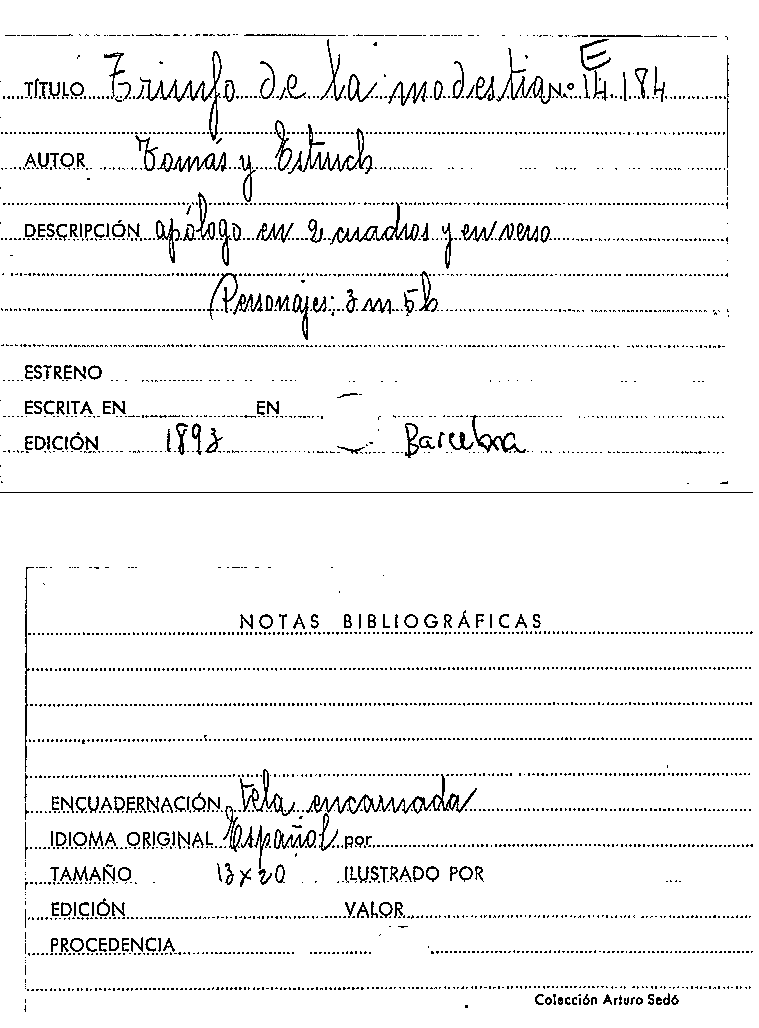 E
TÍTULO Triunfo de la modestia N.º 14.184
AUTOR Tomás y Estruch
DESCRIPCIÓN apólogo en 2 cuadros y en verso
Personajes: 3 m 5 h
ESTRENO
ESCRITA EN EN
EDICIÓN 1893 Barcelona
NOTAS BIBLIOGRÁFICAS
ENCUADERNACIÓN tela encarnada
IDIOMA ORIGINAL Español por
TAMAÑO 13 x 20 ILUSTRADO POR
EDICIÓN VALOR
PROCEDENCIA
Colección Arturo Sedó